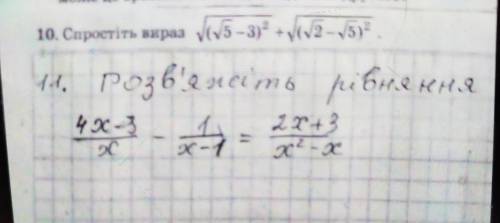 10. Спростіть вираз √(√5 − 3)² + √(√2 − √5)² .
11. Розв'яжіть рівняння
(4x-3)/x − 1/(x-1) = (2x+3)/(x²-x)